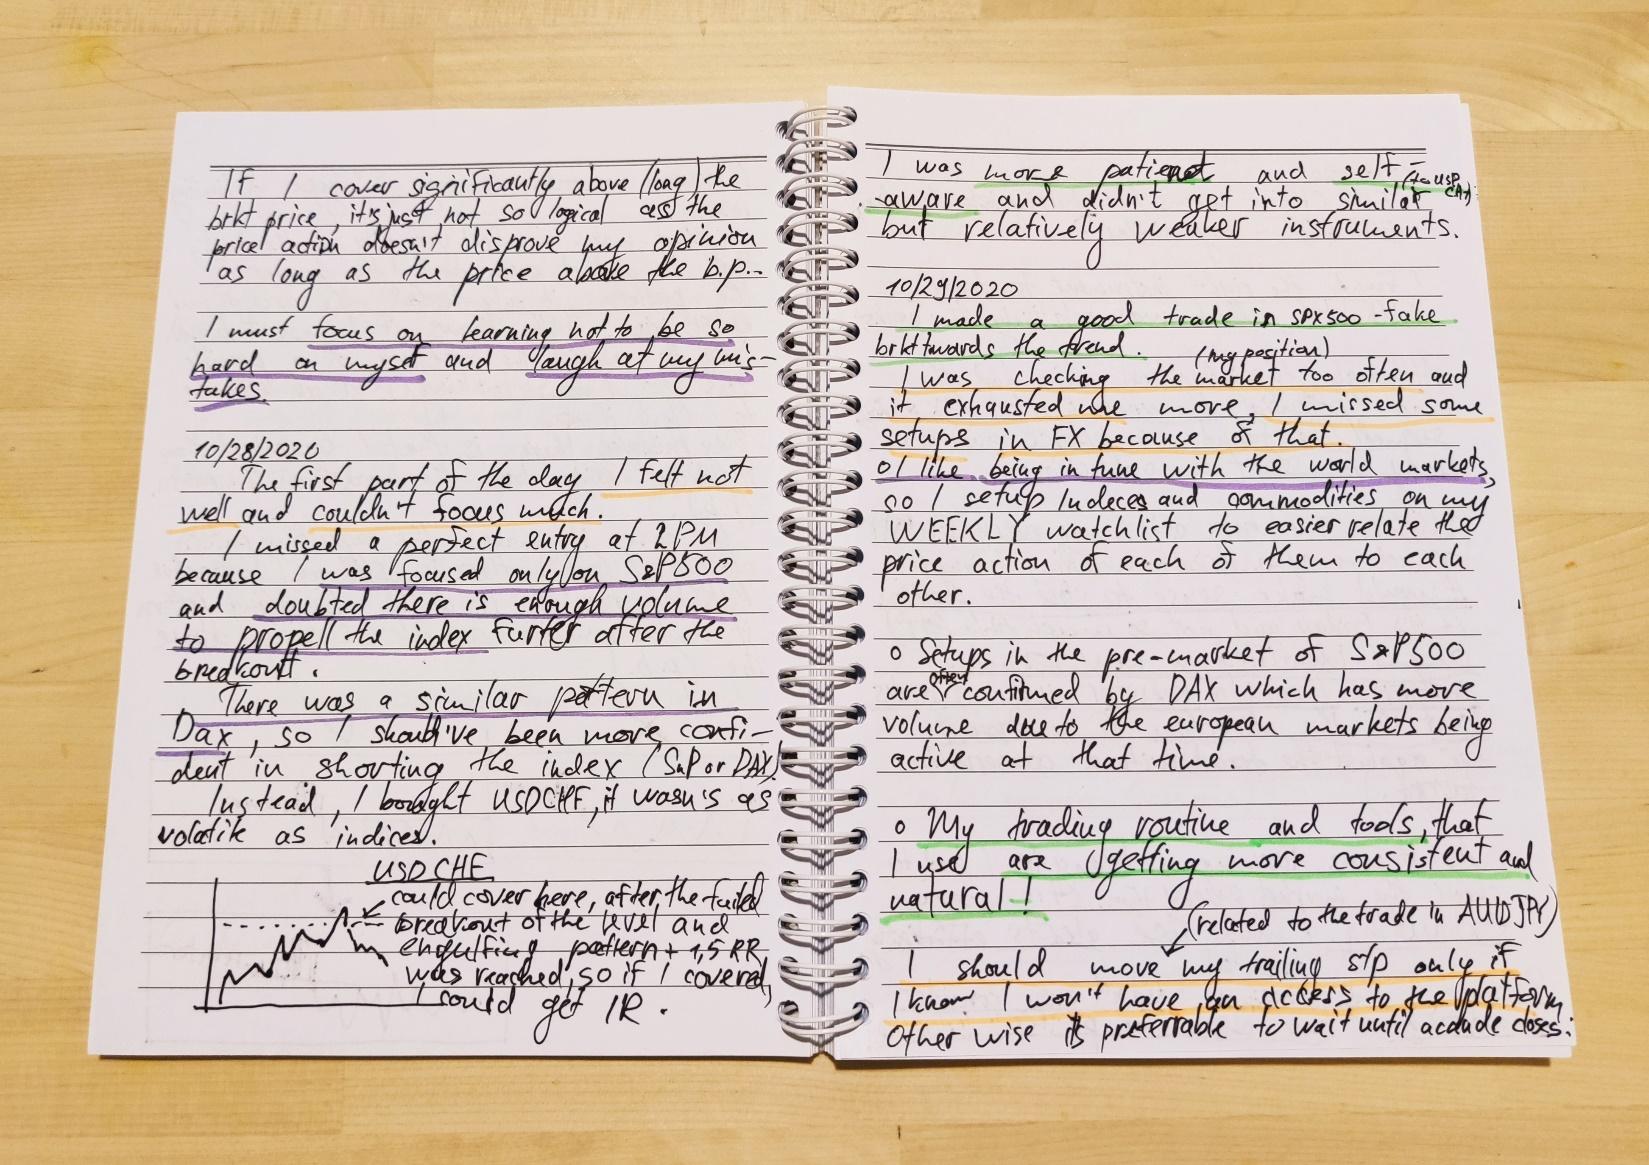 If I cover significantly above (long) the
brkt price, it's just not so logical as the
price action doesn't disprove my opinion
as long as the price above the b.p..
I must focus on learning not to be so
hard on myself and laugh at my mis-
takes.
10/28/2020
The first part of the day I felt not
well and couldn't focus much.
I missed a perfect entry at 2PM
because I was focused only on S&P500
and doubted there is enough volume
to propell the index furter after the
breakout.
There was a similar pattern in
Dax, so I should've been more confi-
dent in shorting the index (SnP or DAX)
Instead, I bought USDCHF, it wasn's as
volatile as indices.
USDCHF
could cover here, after the failed
breakout of the level and
engulfing pattern + 1,5 RR
was reached, so if I covered,
I could get 1R.
I was more patient and self-
aware and didn't get into similar (to USP CAD)
but relatively weaker instruments.
10/29/2020
I made a good trade in SPX500 - fake
brkt towards the trend.
(my position)
I was checking the market too often and
it exhausted me more, I missed some
setups in FX because of that.
o I like being in tune with the world markets,
so I setup Indeces and commodities on my
WEEKLY watchlist to easier relate the
price action of each of them to each
other.
o Setups in the pre-market of S&P500
are often confirmed by DAX which has more
volume due to the european markets being
active at that time.
o My trading routine and tools, that
I use are getting more consistent and
natural!
(related to the trade in AUDJPY)
I should move my trailing stp only if
I know I won't have an access to the platform.
Other wise it's preferrable to wait until a candle closes.